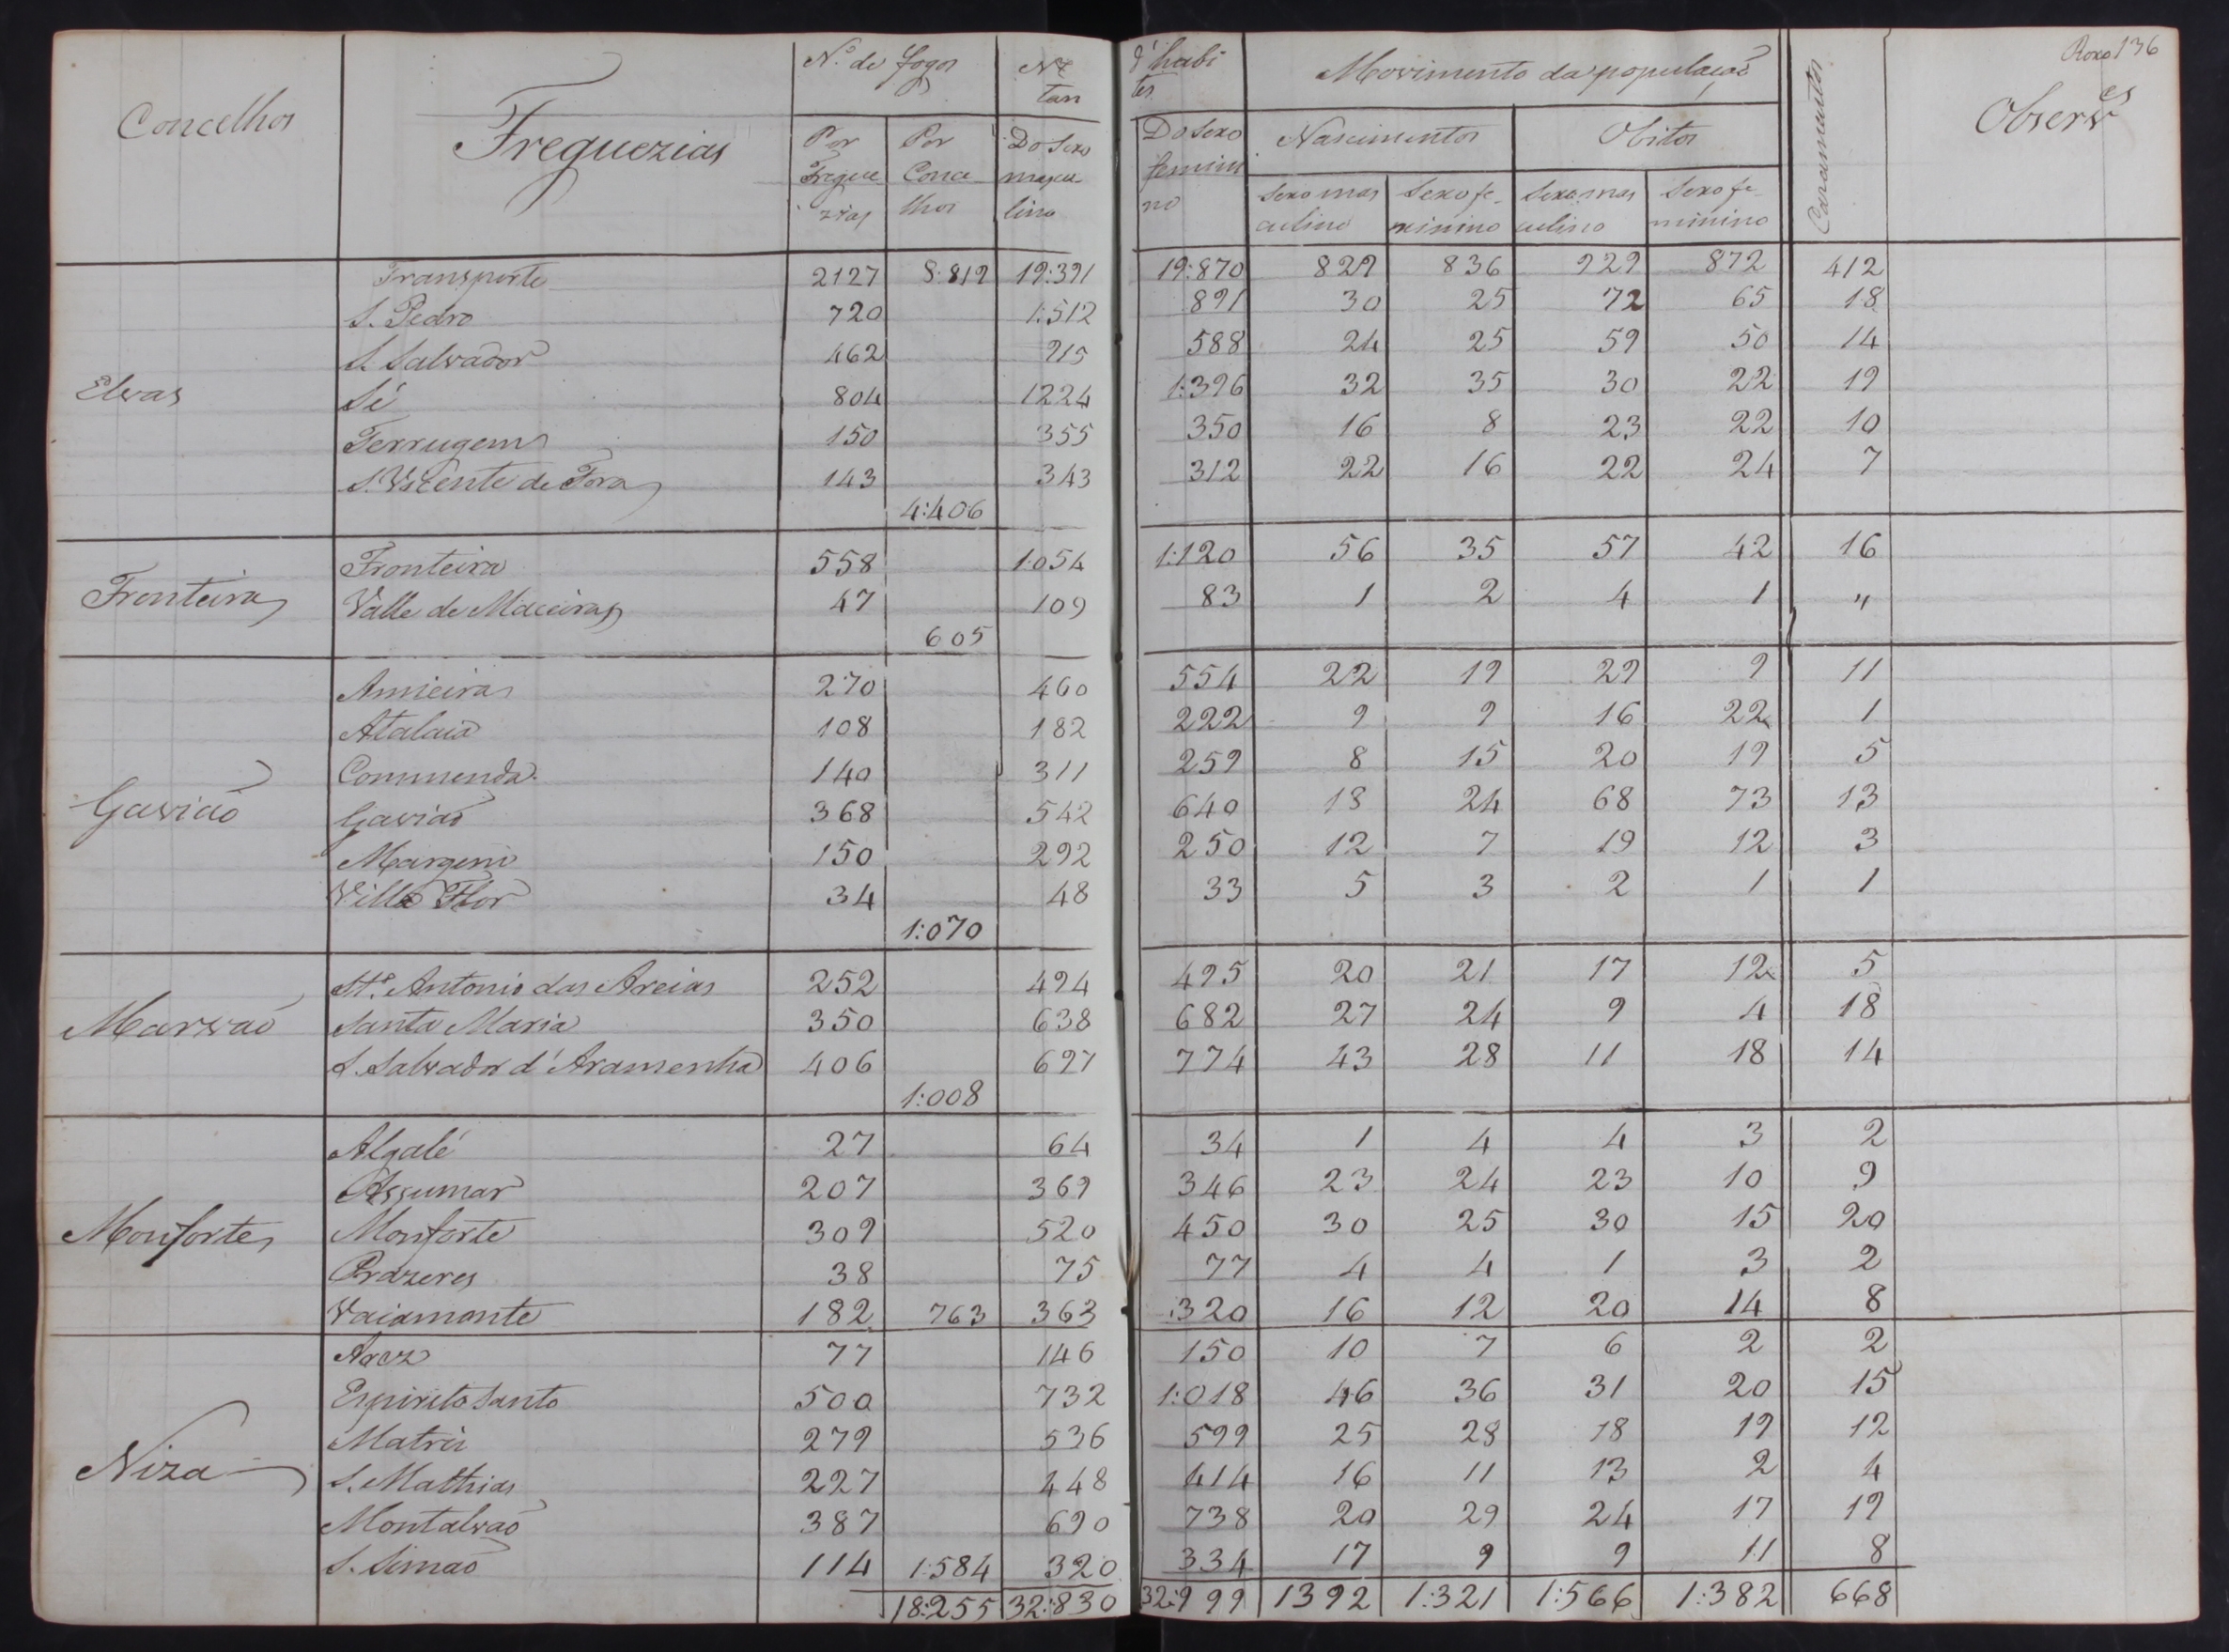 Roxo 136
Concelhos Freguezias Nº de fogos Nº d'habi
tan tes Movimento da população Casamentos Observes
Por Freguezias Por Concelhos Do Sexo masculino Do Sexo feminino Nascimentos Obitos
Sexo masculino Sexo feminino Sexo masculino Sexo feminino
Transporte 2127 8:819 19:391 19:870 829 836 929 872 412
S. Pedro 720 1:512 891 30 25 72 65 18
S. Salvador 462 915 588 24 25 59 50 14
Elvas Sé 804 1224 1:396 32 35 30 22 19
Terrugem 150 355 350 16 8 23 22 10
S. Vicente de Fora 143 343 312 22 16 22 24 7
4:406
Fronteira 558 1:054 1:120 56 35 57 42 16
Fronteira Valle de Maceiras 47 109 83 1 2 4 1 "
605
Amieira 270 460 554 22 19 29 9 11
Atalaia 108 182 222 9 9 16 22 1
Commenda 140 311 259 8 15 20 19 5
Gavião Gavião 368 542 640 18 24 68 73 13
Margem 150 292 250 12 7 19 12 3
Villa Flor 34 48 33 5 3 2 1 1
1:070
Stº Antonio das Areias 252 494 495 20 21 17 12 5
Marvão Santa Maria 350 638 682 27 24 9 4 18
S. Salvador d'Aramenha 406 697 774 43 28 11 18 14
1:008
Algalé 27 64 34 1 4 4 3 2
Assumar 207 369 346 23 24 23 10 9
Monforte Monforte 309 520 450 30 25 30 15 20
Prazeres 38 75 77 4 4 1 3 2
Vaiamonte 182 763 363 320 16 12 20 14 8
Arez 77 146 150 10 7 6 2 2
Espirito Santo 500 732 1:018 46 36 31 20 15
Matriz 279 536 599 25 28 18 19 12
Niza S. Mathias 227 448 414 16 11 13 2 4
Montalvão 387 690 738 20 29 24 17 19
S. Simão 114 1:584 320 334 17 9 9 11 8
18:255 32:830 32:999 1392 1:321 1:566 1:382 668